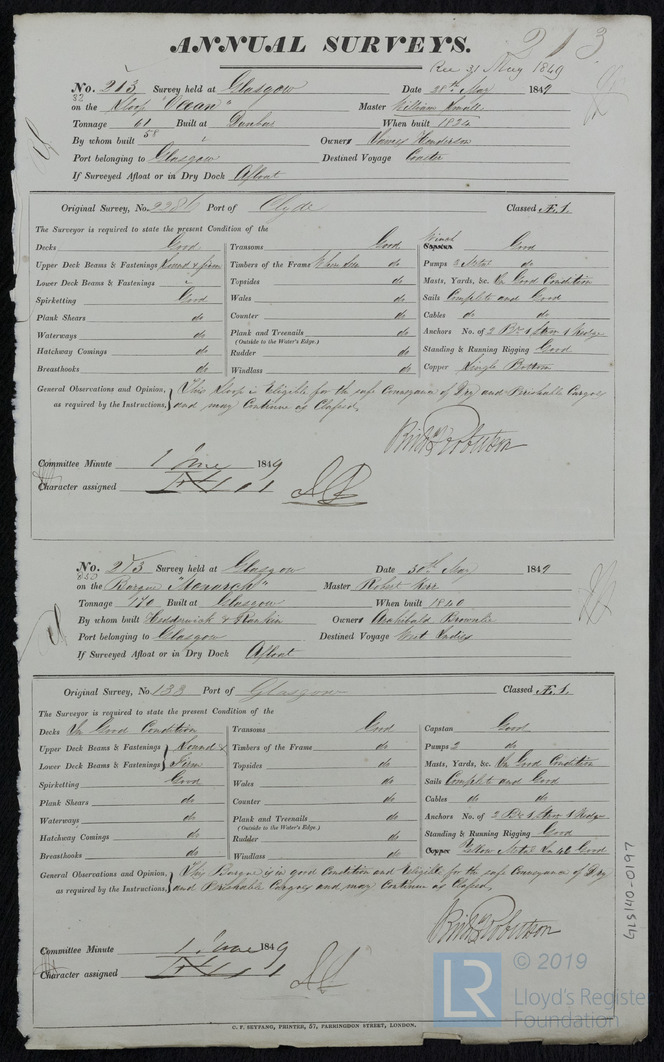 ANNUAL SURVEYS.
213
Rec 31 May 1849
No. 213 Survey held at Glasgow Date 28th May 1849
32
on the Sloop "Ocean" Master William Small
Tonnage 61 Built at Dunbar When built 1834
58
By whom built Owners James Henderson
Port belonging to Glasgow Destined Voyage Coaster
If Surveyed Afloat or in Dry Dock Afloat
Original Survey, No. Port of Clyde Classed Æ.1.
The Surveyor is required to state the present Condition of the
Decks Good Transoms Good Winch Capstan Good
Upper Deck Beams & Fastenings Sound & firm Timbers of the Frame When seen do Pumps 2 Metal do
Lower Deck Beams & Fastenings Topsides do Masts, Yards, &c. In Good Condition
Spirketting Good Wales do Sails Complete and Good
Plank Shears do Counter do Cables do do
Waterways do Plank and Treenails do Anchors No. of 2 Br 1 Strm 1 Kedge
(Outside to the Water's Edge.)
Hatchway Comings do Rudder do Standing & Running Rigging Good
Breasthooks do Windlass do Copper Single Bottom
General Observations and Opinion, This Sloop is Eligible for the safe Conveyance of Dry and Perishable Cargoes
as required by the Instructions, and may Continue as Classed
Richd Robertson
Committee Minute 1 June 1849
Character assigned
No. 213 Survey held at Glasgow Date 30th May 1849
350
on the Barque "Monarch" Master Robert Kerr
Tonnage 170 Built at Glasgow When built 1840
By whom built Hedderwick & Rankin Owners Archibald Brownlie
Port belonging to Glasgow Destined Voyage West Indies
If Surveyed Afloat or in Dry Dock Afloat
Original Survey, No. 133 Port of Glasgow Classed Æ.1.
The Surveyor is required to state the present Condition of the
Decks In Good Condition Transoms Good Capstan Good
Upper Deck Beams & Fastenings Sound & Timbers of the Frame do Pumps 2 do
Lower Deck Beams & Fastenings Firm Topsides do Masts, Yards, &c. In Good Condition
Spirketting Good Wales do Sails Complete and Good
Plank Shears do Counter do Cables do do
Waterways do Plank and Treenails do Anchors No. of 2 Br 1 Strm 1 Kedge
(Outside to the Water's Edge.)
Hatchway Comings do Rudder do Standing & Running Rigging Good
Breasthooks do Windlass do Copper Yellow Metal In 48 Good
General Observations and Opinion, This Barque is in good Condition and Eligible for the safe Conveyance of Dry
as required by the Instructions, and Perishable Cargoes and may Continue as Classed
Richd Robertson
Committee Minute 1 June 1849
Character assigned
C. F. SEYFANG, PRINTER, 57, FARRINGDON STREET, LONDON.
GLS140-0197
LR
© 2019
Lloyd's Register
Foundation